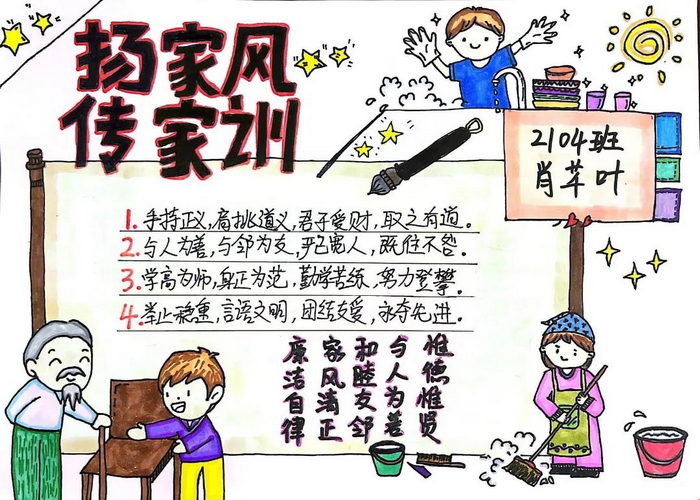 扬家风
传家训
2104班
肖苹叶
1.手持正义,肩挑道义,君子爱财,取之有道。
2.与人为善,与邻为友,严己宽人,既往不咎。
3.学高为师,身正为范,勤学苦练,努力登攀。
4.举止稳重,言语文明,团结友爱,永夺先进。
惟德惟贤
与人为善
和睦友邻
家风清正
廉洁自律